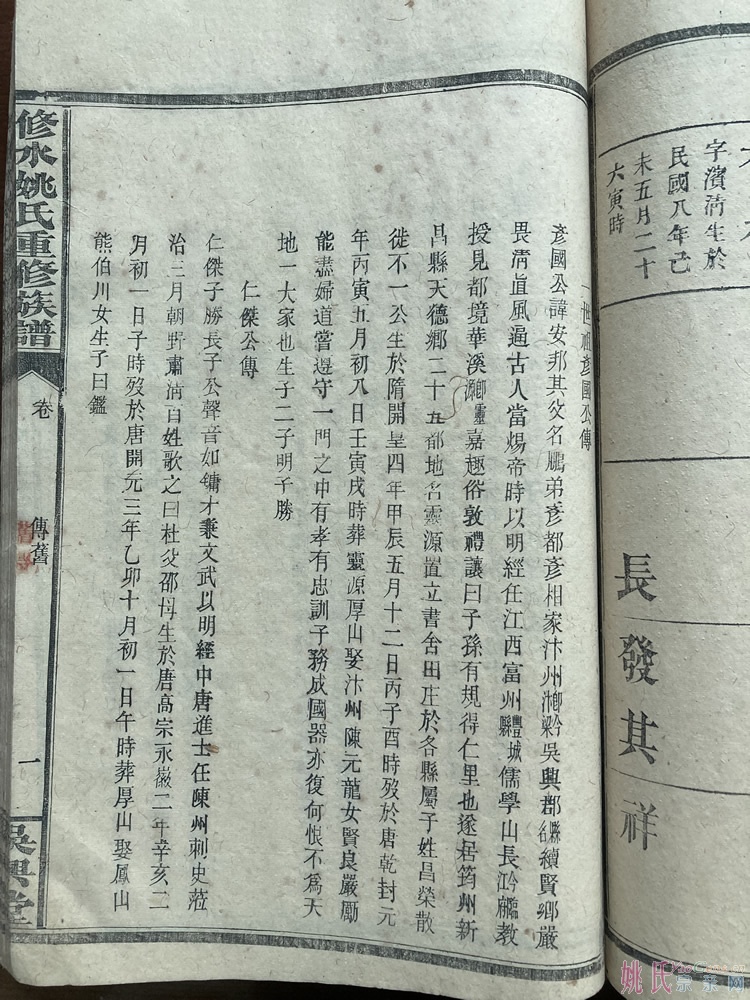 字濱清生於
民國八年己
未五月二十
六寅時
長發其祥
一世祖彥國公傳
彥國公諱安邦其父名鵬弟彥都彥相家汴州鄉梁吳興郡縣續賢鄉嚴
畏清直風逼古人當煬帝時以明經任江西富州豐城縣儒學山長臨江教
授見都境華溪靈源嘉趣俗敦禮讓曰子孫有規得仁里也遂居筠州新
昌縣天德鄉二十五都地名靈源置立書舍田庄於各縣屬子姓昌榮散
徙不一公生於隋開皇四年甲辰五月十二日丙子酉時歿於唐乾封元
年丙寅五月初八日壬寅戌時葬靈源厚山娶汴州陳元龍女賢良嚴勵
能盡婦道嘗遵守一門之中有孝有忠訓子務成國器亦復何恨不為天
地一大家也生子二子明子勝
仁傑公傳
仁傑子勝長子公聲音如鏞才秉文武以明經中唐進士任陳州刺史蒞
治三月朝野肅清百姓歌之曰杜父邵母生於唐高宗永徽二年辛亥二
月初一日子時歿於唐開元三年乙卯十月初一日午時葬厚山娶鳳山
熊伯川女生子曰鑑
修水姚氏重修族譜
卷
傳舊
一
吳興堂
姚氏宗亲网